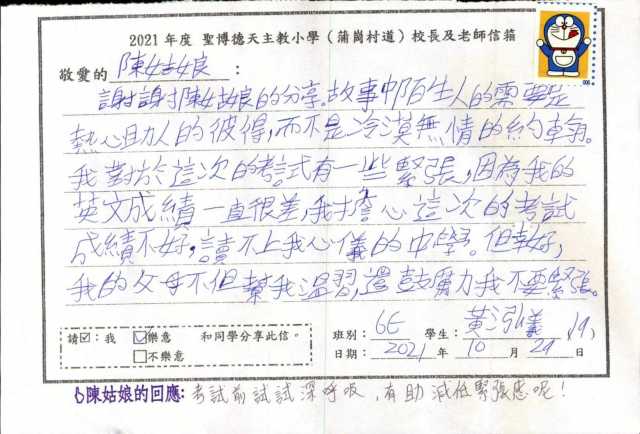 2021 年度 聖博德天主教小學（蒲崗村道）校長及老師信箱
敬愛的 陳姑娘：
謝謝陳姑娘的分享。故事中陌生人的需要是
熱心助人的彼得，而不是冷漠無情的約翰。
我對於這次的考試有一些緊張，因為我的
英文成績一直很差，我擔心這次的考試
成績不好，讀不上我心儀的中學。但幸好，
我的父母不但幫我溫習，還鼓勵我不要緊張。
請☑：我 ☑樂意 和同學分享此信。
□不樂意
班別：6E 學生：黃泓儀 (19)
日期：2021 年 10 月 29 日
陳姑娘的回應：考試前試試深呼吸，有助減低緊張感呢！